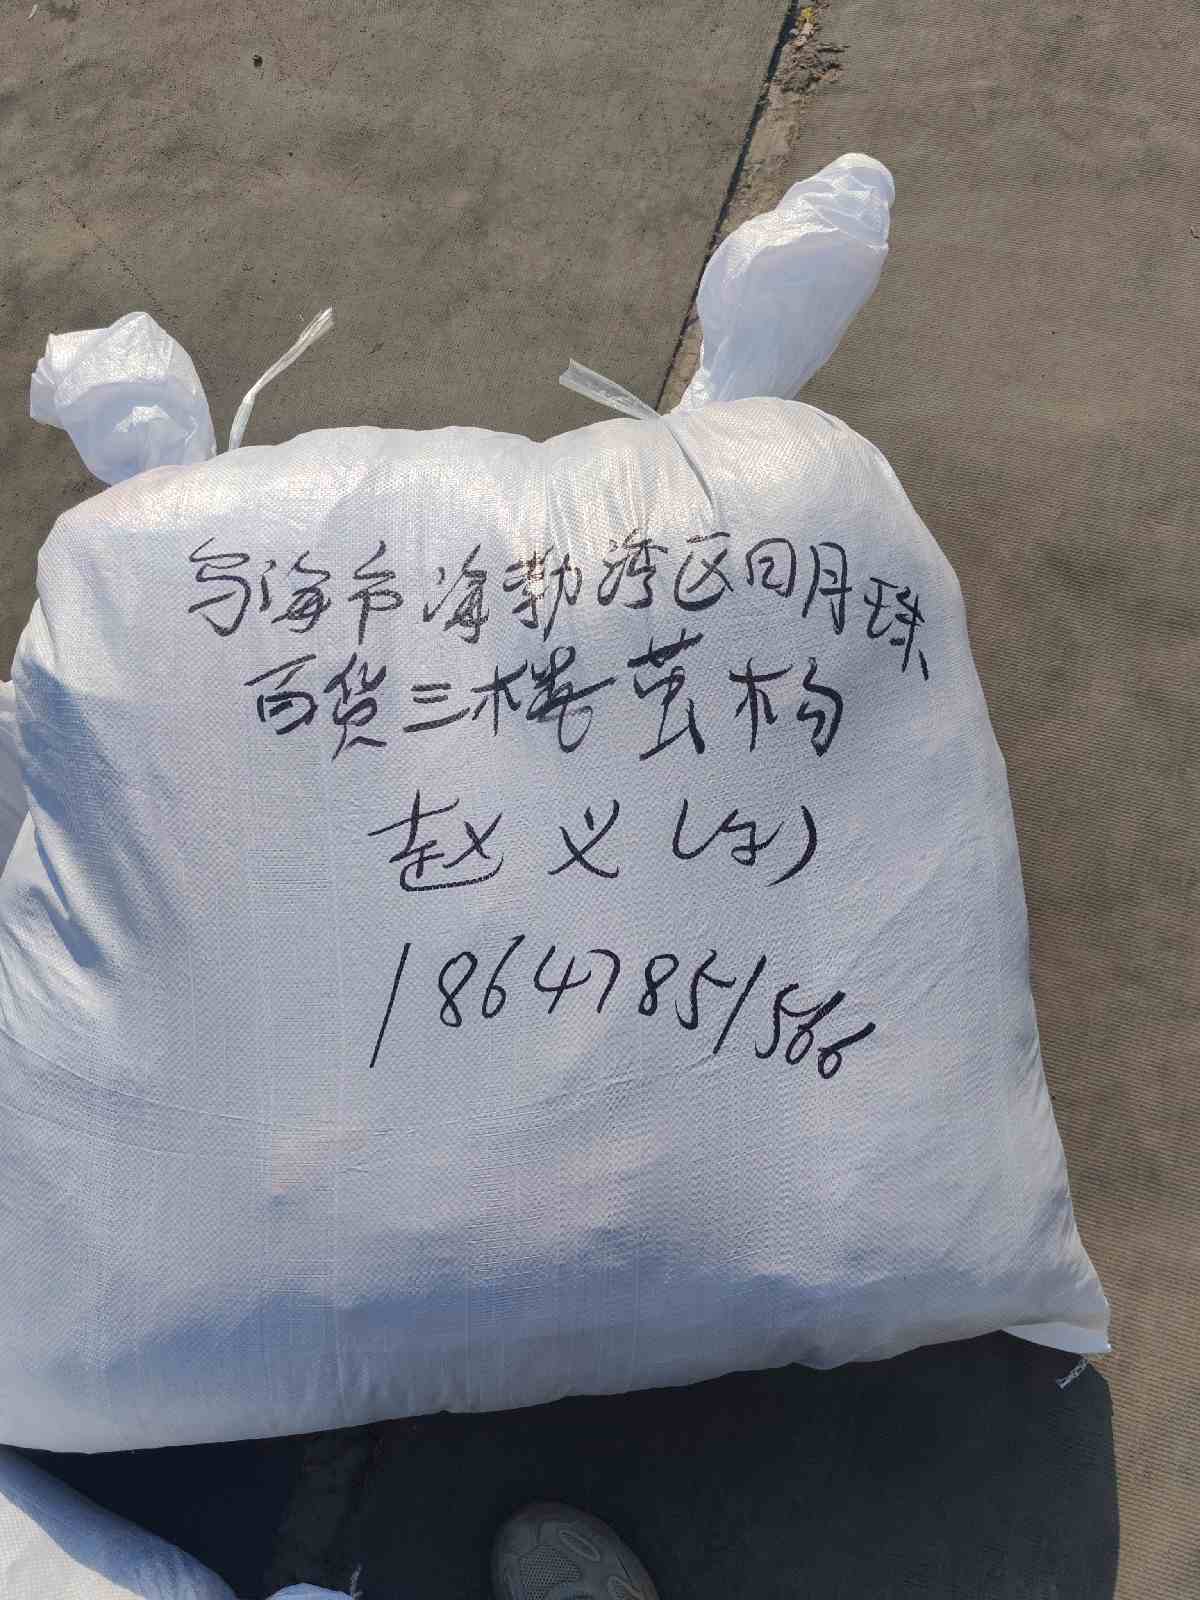 乌海市海勃湾区日月珠
百货三楼茧杨
赵义(女)
18647851566